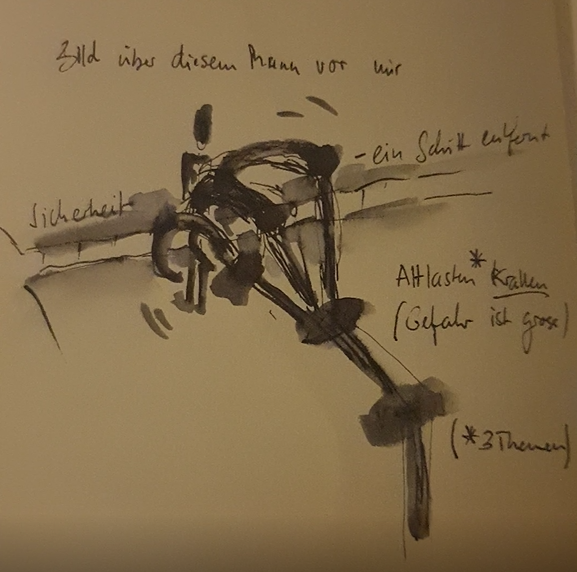 Bild über diesem Mann vor mir
- ein Schritt entfernt
Sicherheit
Altlasten* Krallen
(Gefahr ist gross)
(*3 Themen)